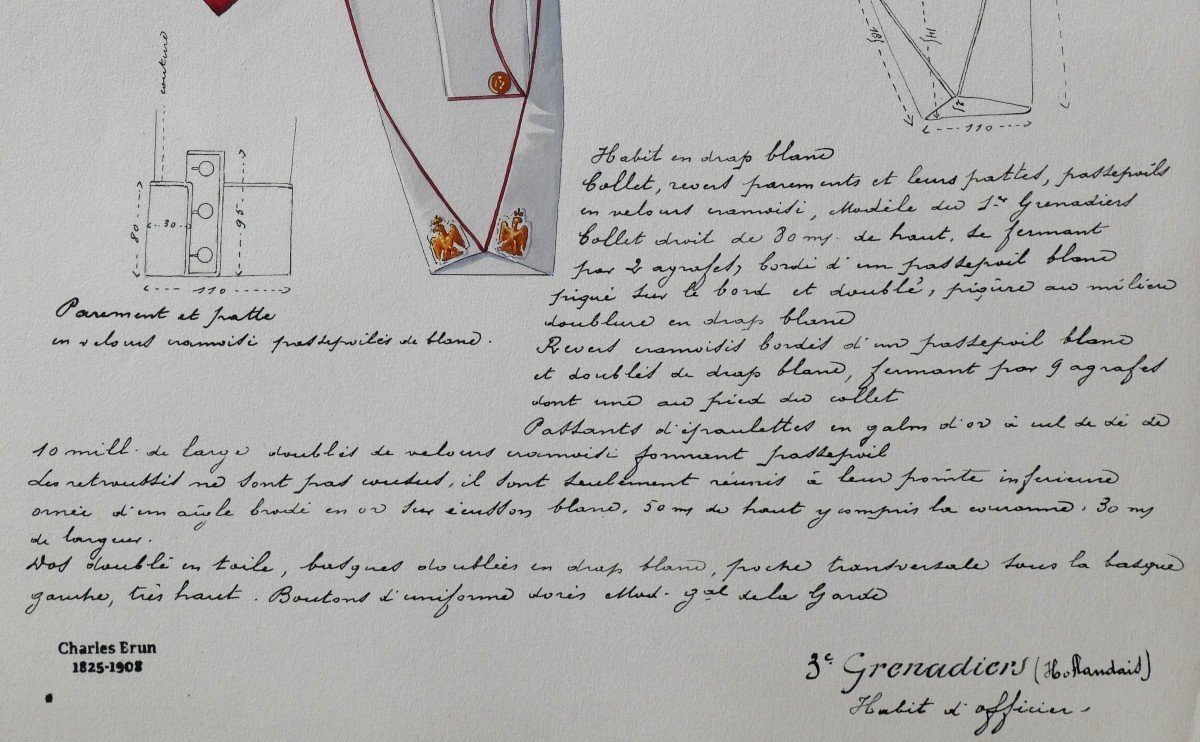 couture
185
145
25
110
80
30
95
110
Parement et patte
en velours cramoisi passepoilés de blanc.
Habit en drap blanc
Collet, revers parements et leurs pattes, passepoils
en velours cramoisi, Modèle du 1er Grenadiers
Collet droit de 80 ms. de haut. se fermant
par 2 agrafes, bordé d'un passepoil blanc
piqué sur le bord et doublé, piqûre au milieu
doublure en drap blanc
Revers cramoisis bordés d'un passepoil blanc
et doublés de drap blanc, fermant par 9 agrafes
dont une au pied du collet
Passants d'épaulettes en galon d'or à cul de dé de
10 mill. de large doublés de velours cramoisi formant passepoil
Les retroussis ne sont pas cousus, il sont seulement réunis à leur pointe inferieure
ornée d'un aigle brodé en or sur écusson blanc, 50 ms de haut y compris la couronne, 30 ms
de largeur.
Dos doublé en toile, basques doublées en drap blanc, poche transversale sous la basque
gauche, très haut. Boutons d'uniforme dorés Mod. gal de la Garde
Charles Brun
1825-1908
3e Grenadiers (Hollandais)
Habit d'officier.